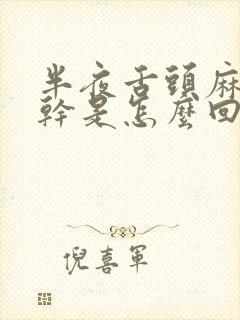 半夜舌頭麻
幹是怎麼回
倪喜軍